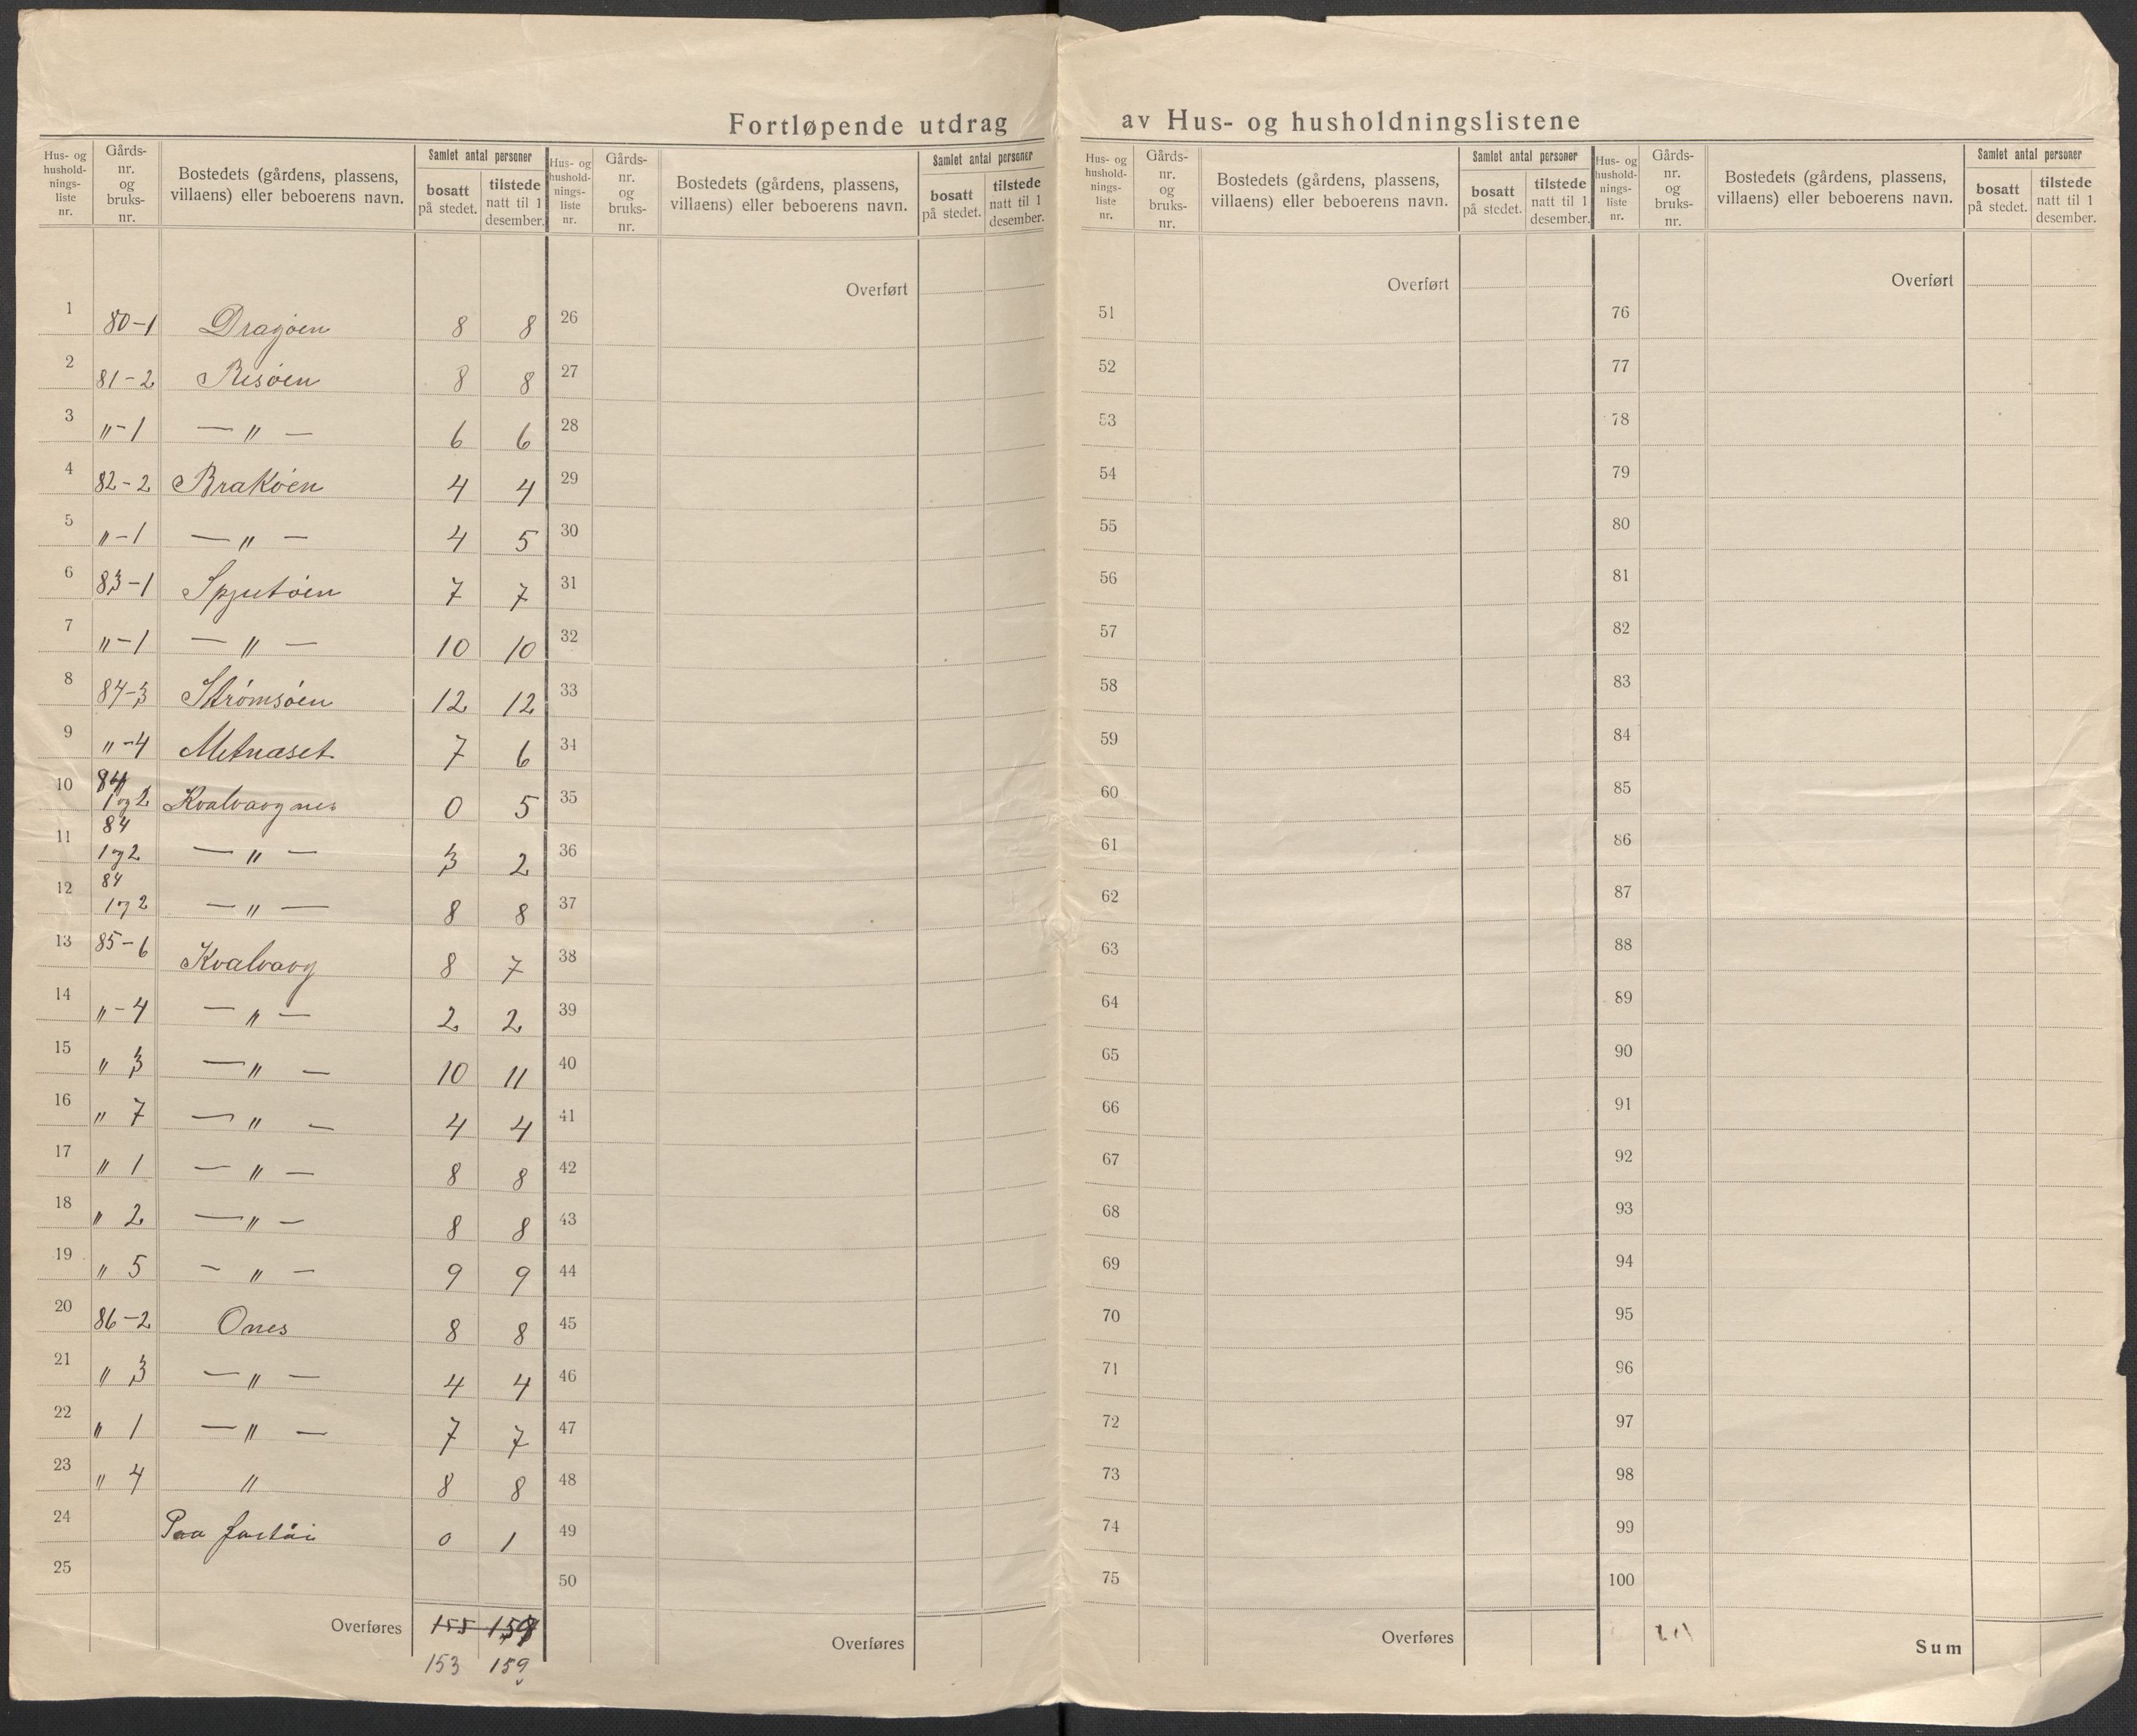 Fortløpende utdrag av Hus- og husholdningslistene
Hus- og hushold- nings- liste nr. | Gårds- nr. og bruks- nr. | Bostedets (gårdens, plassens, villaens) eller beboerens navn. | Samlet antal personer | bosatt på stedet. | tilstede natt til 1 desember.
Hus- og hushold- nings- liste nr. | Gårds- nr. og bruks- nr. | Bostedets (gårdens, plassens, villaens) eller beboerens navn. | Samlet antal personer | bosatt på stedet. | tilstede natt til 1 desember.
Hus- og hushold- nings- liste nr. | Gårds- nr. og bruks- nr. | Bostedets (gårdens, plassens, villaens) eller beboerens navn. | Samlet antal personer | bosatt på stedet. | tilstede natt til 1 desember.
Hus- og hushold- nings- liste nr. | Gårds- nr. og bruks- nr. | Bostedets (gårdens, plassens, villaens) eller beboerens navn. | Samlet antal personer | bosatt på stedet. | tilstede natt til 1 desember.
1 80-1 Dragøen 8 8
2 81-2 Risøen 8 8
3 "-1 — " — 6 6
4 82-2 Brakøen 4 4
5 "-1 — " — 4 5
6 83-1 Spjutøen 7 7
7 "-1 — " — 10 10
8 84-3 Strømsøen 12 12
9 "-4 Metnæset 7 6
10 84 1 og 2 Kvalvaagnes 0 5
11 84 1 og 2 — " — 3 2
12 84 1 og 2 — " — 8 8
13 85-6 Kvalvaag 8 7
14 "-4 — " — 2 2
15 " 3 — " — 10 11
16 " 7 — " — 4 4
17 " 1 — " — 8 8
18 " 2 — " — 8 8
19 " 5 — " — 9 9
20 86-2 Ones 8 8
21 " 3 — " — 4 4
22 " 1 — " — 7 7
23 " 4 " 8 8
24 Paa 0 1
25
Overføres 155
153 159
Overført
26
27
28
29
30
31
32
33
34
35
36
37
38
39
40
41
42
43
44
45
46
47
48
49
50
Overføres
Overført
51
52
53
54
55
56
57
58
59
60
61
62
63
64
65
66
67
68
69
70
71
72
73
74
75
Overføres
Overført
76
77
78
79
80
81
82
83
84
85
86
87
88
89
90
91
92
93
94
95
96
97
98
99
100
Sum